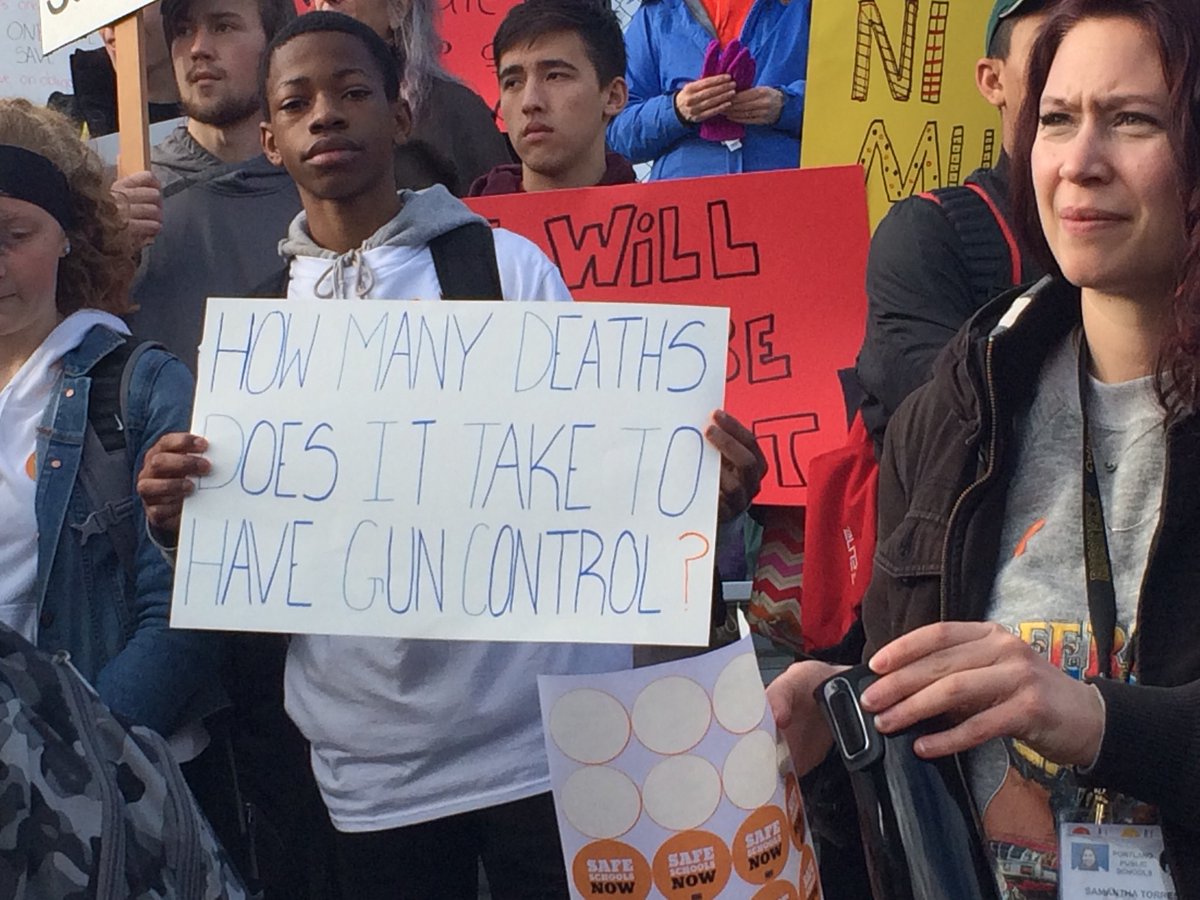 ON
SAV
NI
MI
WiLL
BE
T
HOW MANY DEATHS
DOES IT TAKE TO
HAVE GUN CONTROL?
SAFE
SCHOOLS
NOW
SAFE
SCHOOLS
NOW
SAFE
SCHOOLS
NOW
PORTLAND
PUBLIC
SCHOOLS
SAMANTHA TORRE